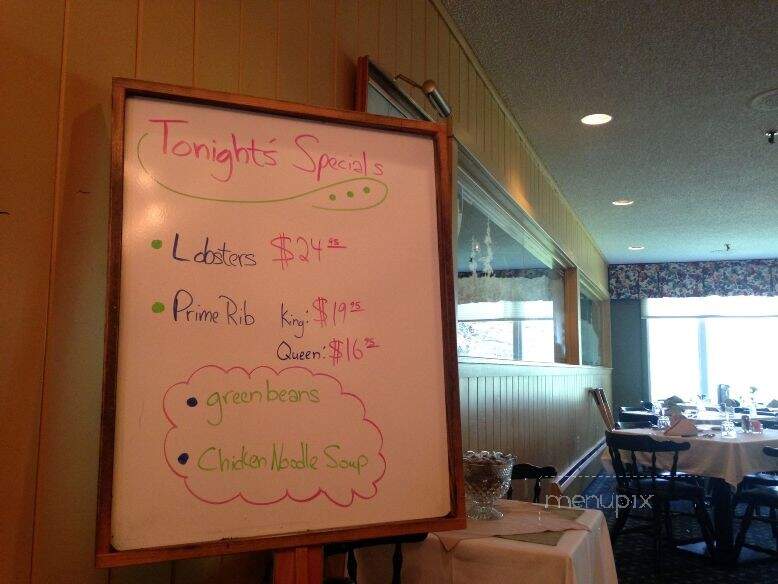 Tonight's Specials
...
• Lobsters $24.95
• Prime Rib King: $19.95
Queen: $16.95
• green beans
• Chicken Noodle Soup
menupix